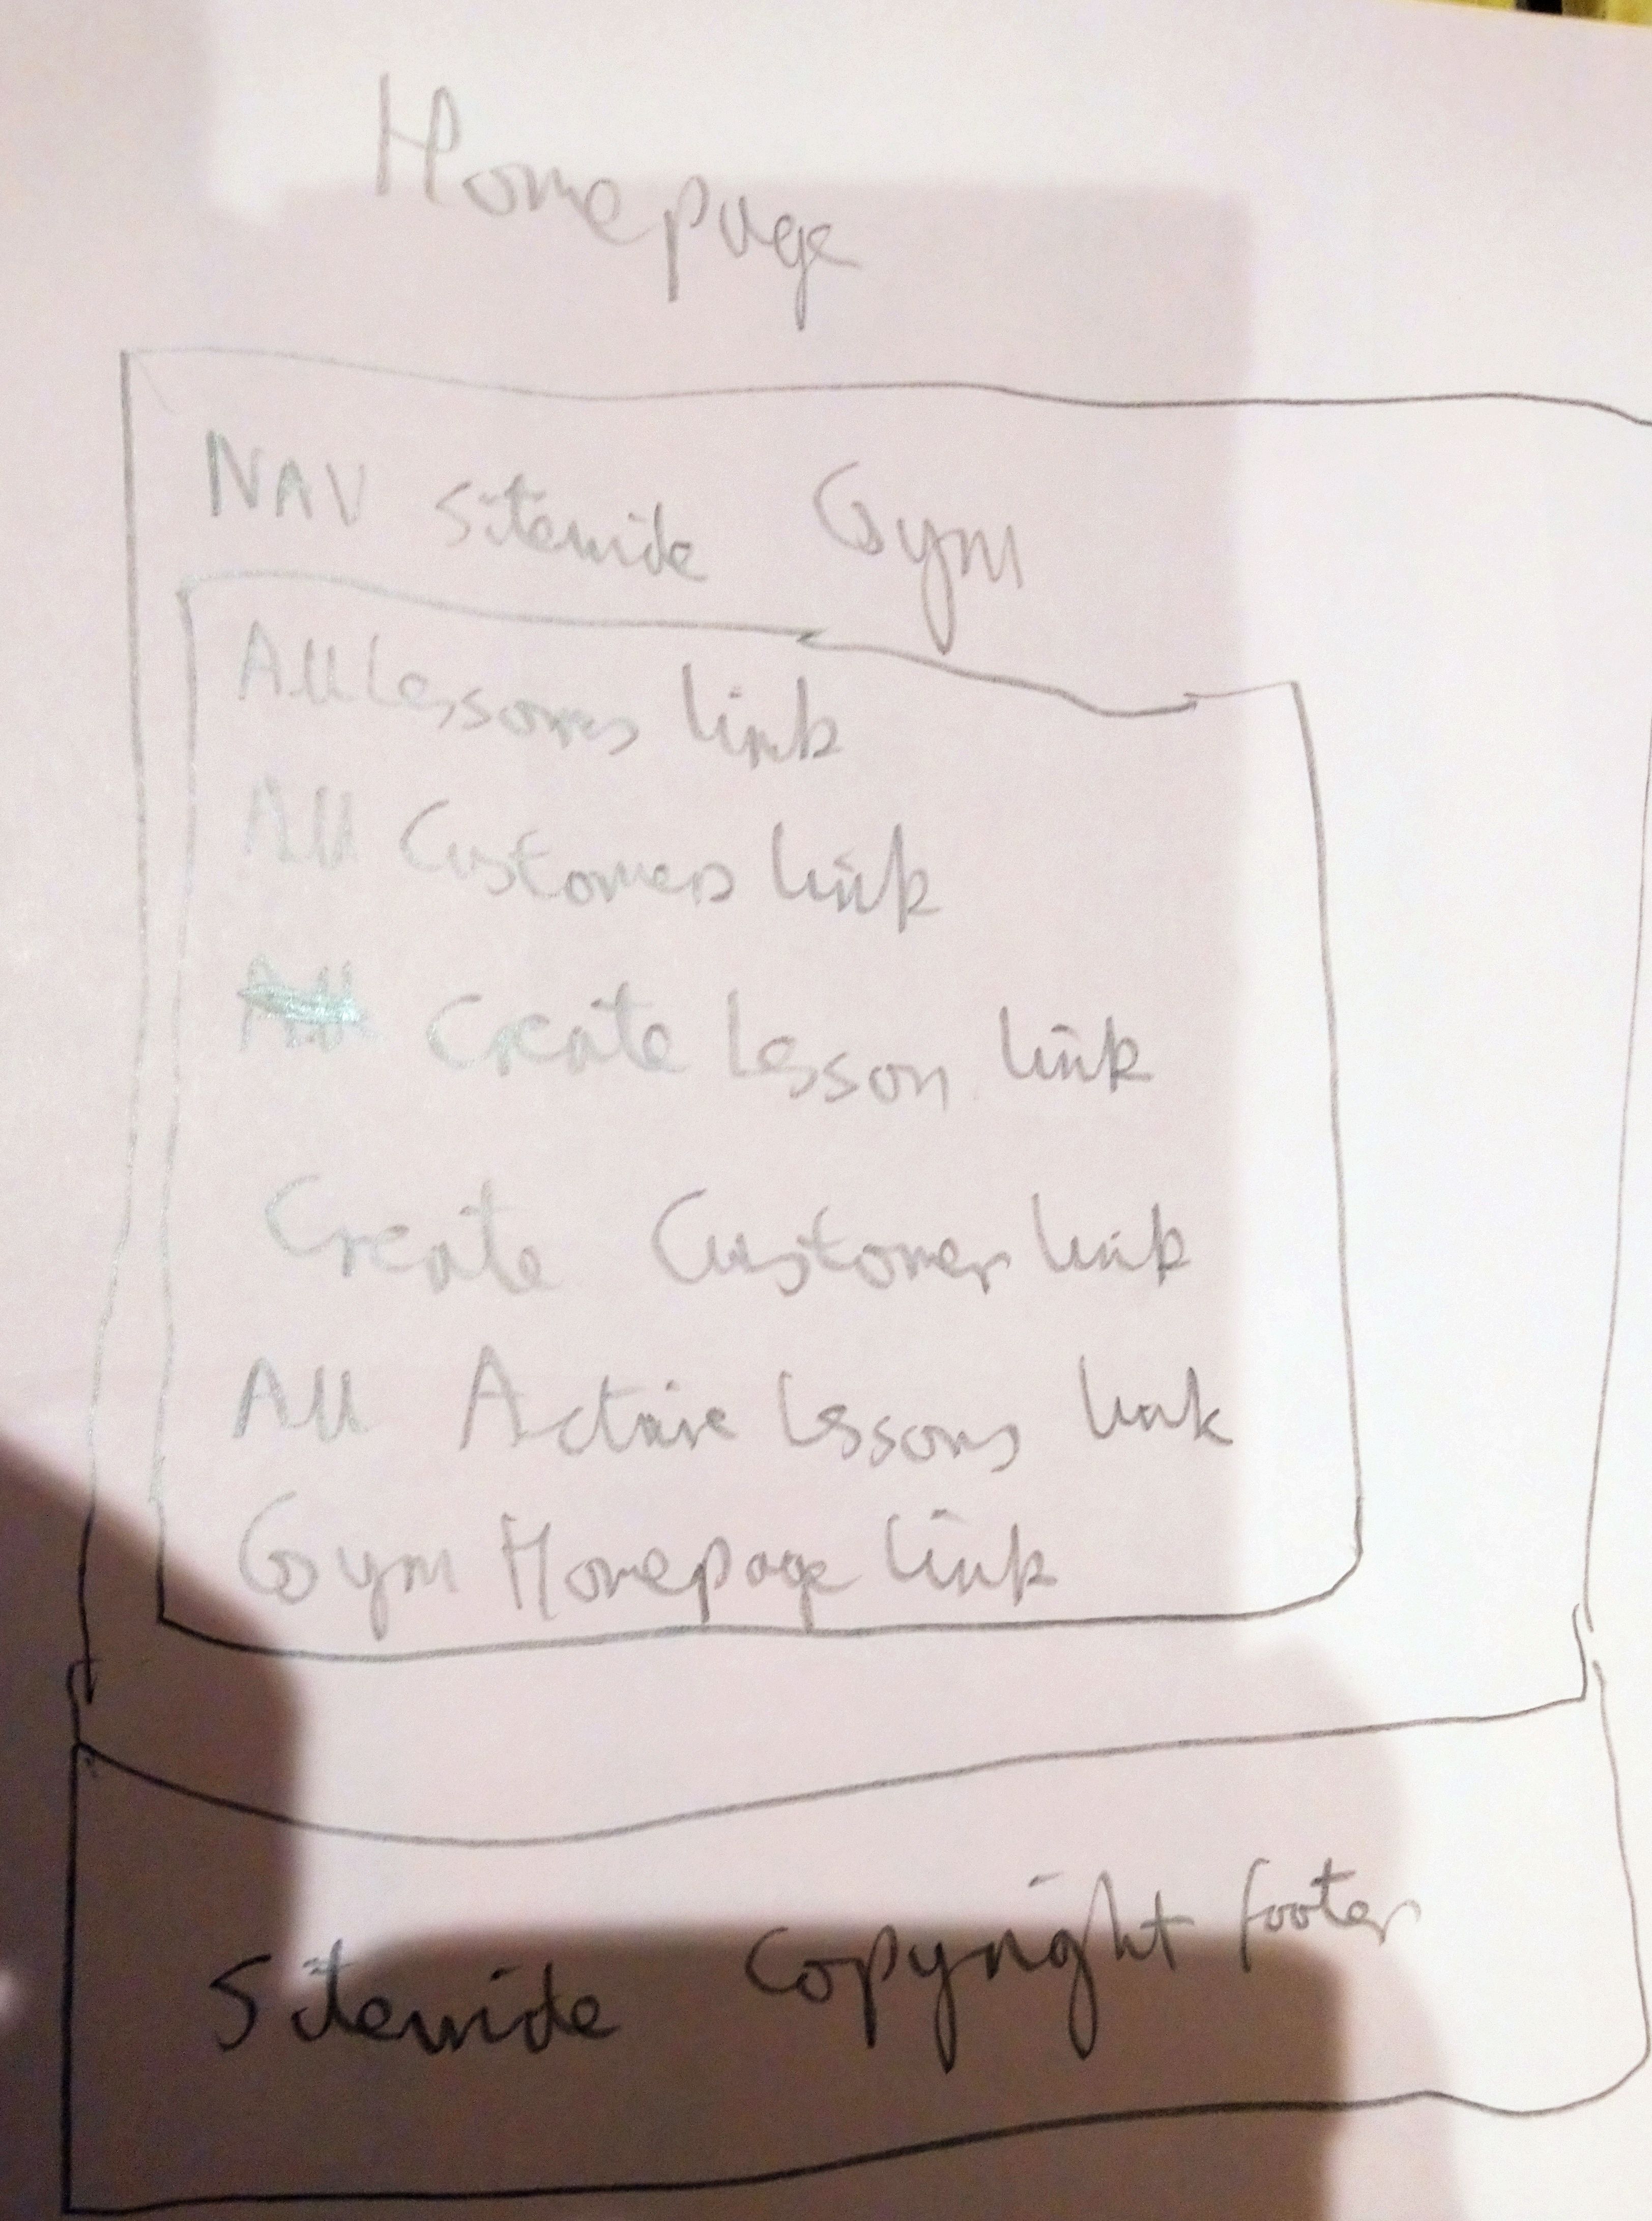 Homepage
NAV Sitewide Gym
All Lessons link
All Customers link
Create Lesson link
Create Customer link
All Active Lessons link
Gym Homepage link
Sitewide Copyright footer